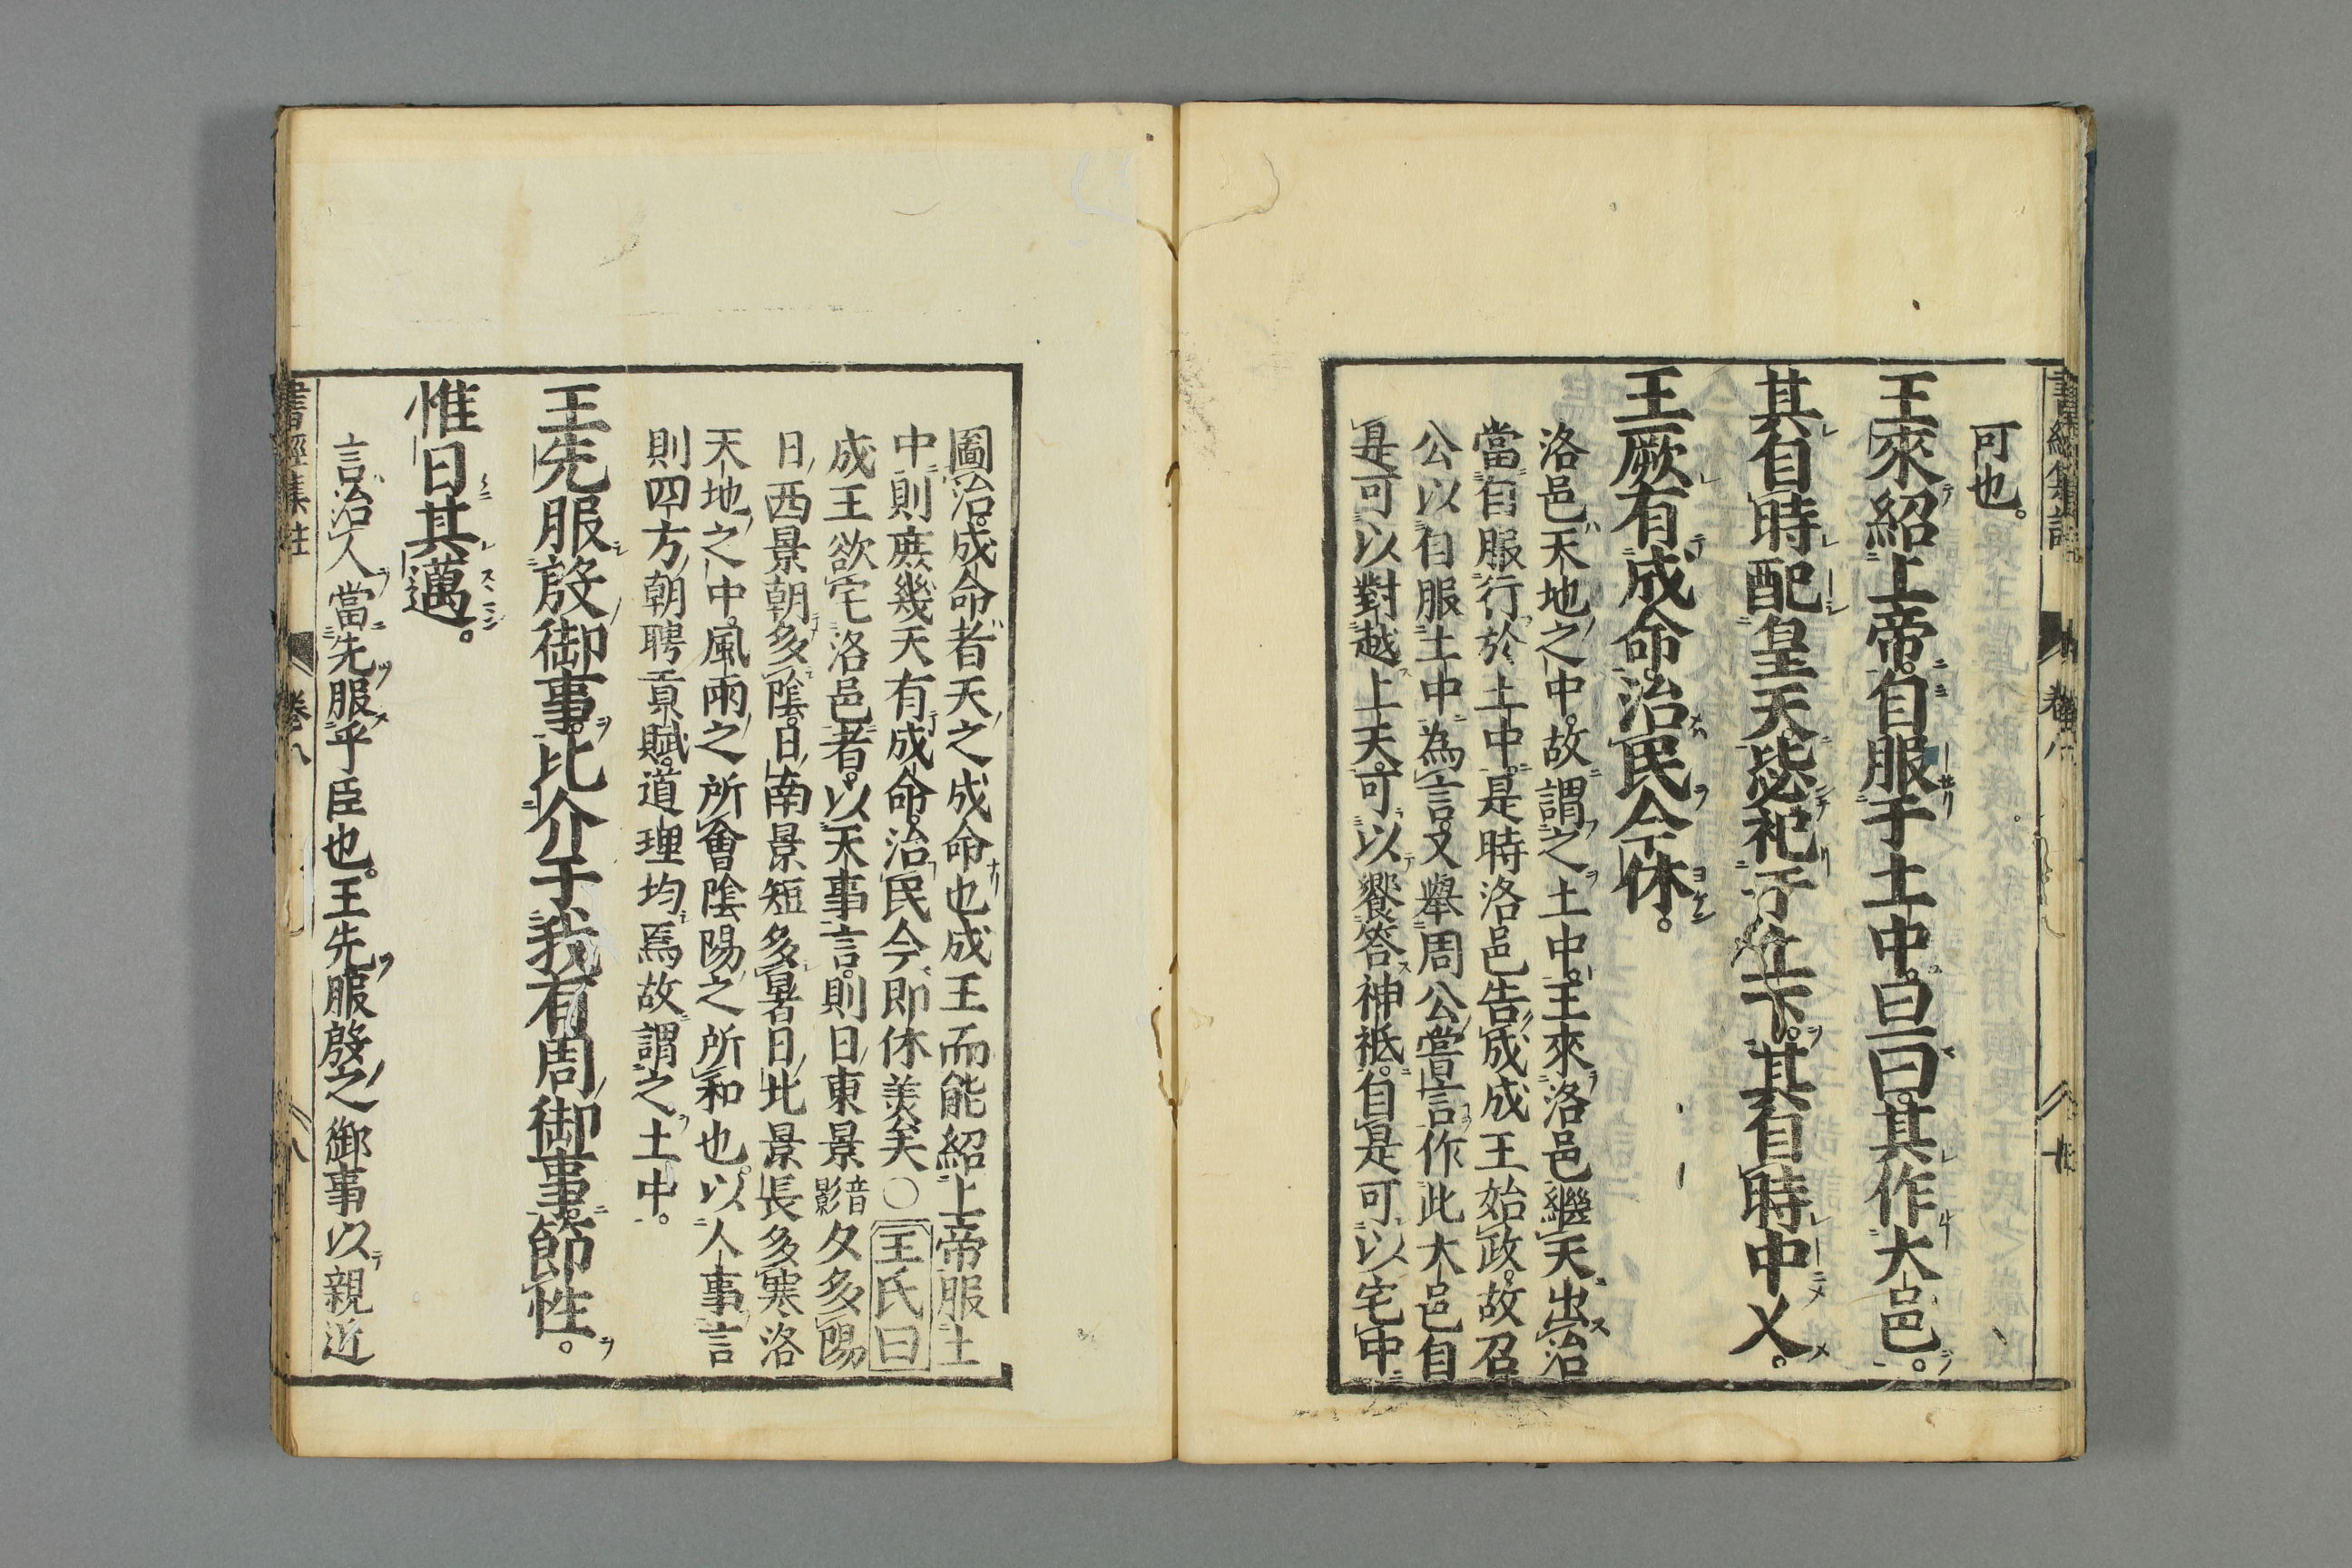 可也。
王來紹上帝。自服于土中。旦曰。其作大邑。
其自時配皇天。毖祀于上下。其自時中乂。
王厥有成命。治民今休。
洛邑天地之中。故謂之土中。王來洛邑繼天出治
當自服行於土中。是時洛邑告成成王始政。故召
公以自服土中為言。又舉周公嘗言作此大邑自
是可以對越上天。可以饗答神祗。自是可以宅中
圖治。成命者天之成命也成王而能紹上帝服土
中則庶幾天有成命。治民今即休羙矣〇王氏曰
成王欲宅洛邑者。以天事言。則日東景影音夕多陽
日西景朝多陰。日南景短多暑日北景長多寒洛
天地之中。風雨之所會陰陽之所和也。以人事言
則四方朝聘貢賦。道理均焉故謂之土中。
王先服殷御事。比介于我有周御事。節性。
惟日其邁。
言治人當先服乎臣也。王先服殷之御事以親近
書經集註
卷八
八